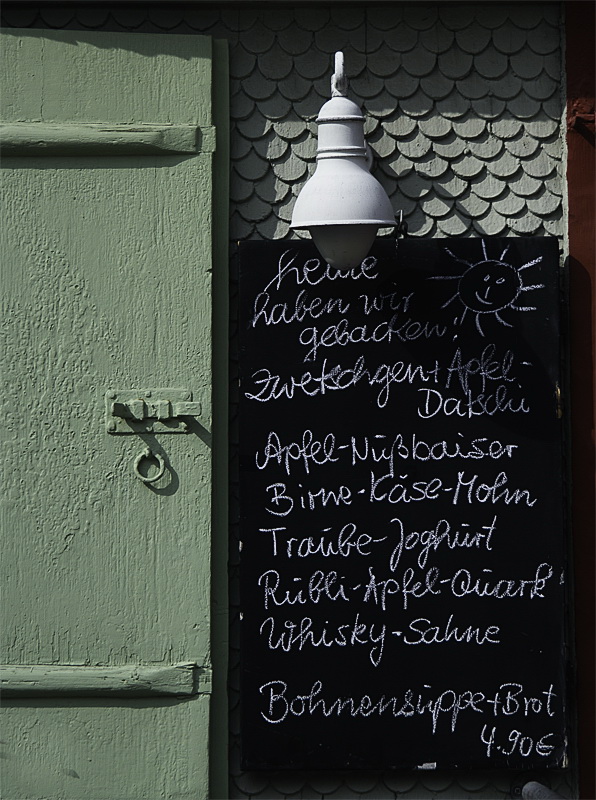 heute
haben wir
gebacken!
Zwetschgen + Apfel-
Datschi
Apfel-Nußbaiser
Birne-Käse-Mohn
Traube-Joghurt
Rübli-Apfel-Quark
Whisky-Sahne
Bohnensuppe + Brot
4.90€